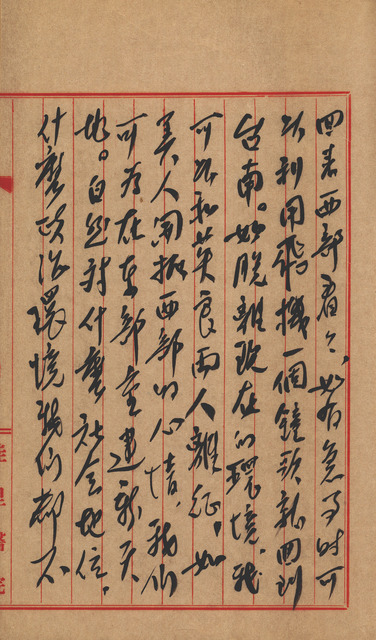 回來西部看看、如有急事時可
以利用飛機一個鐘頭就回到
台南。如脫離現在的環境，我
可以和英良兩人離征，如
美人開拓西部的心情，我們
可為在東部重建新天
地。自然對什麼社會地位，
什麼政治環境我們都不